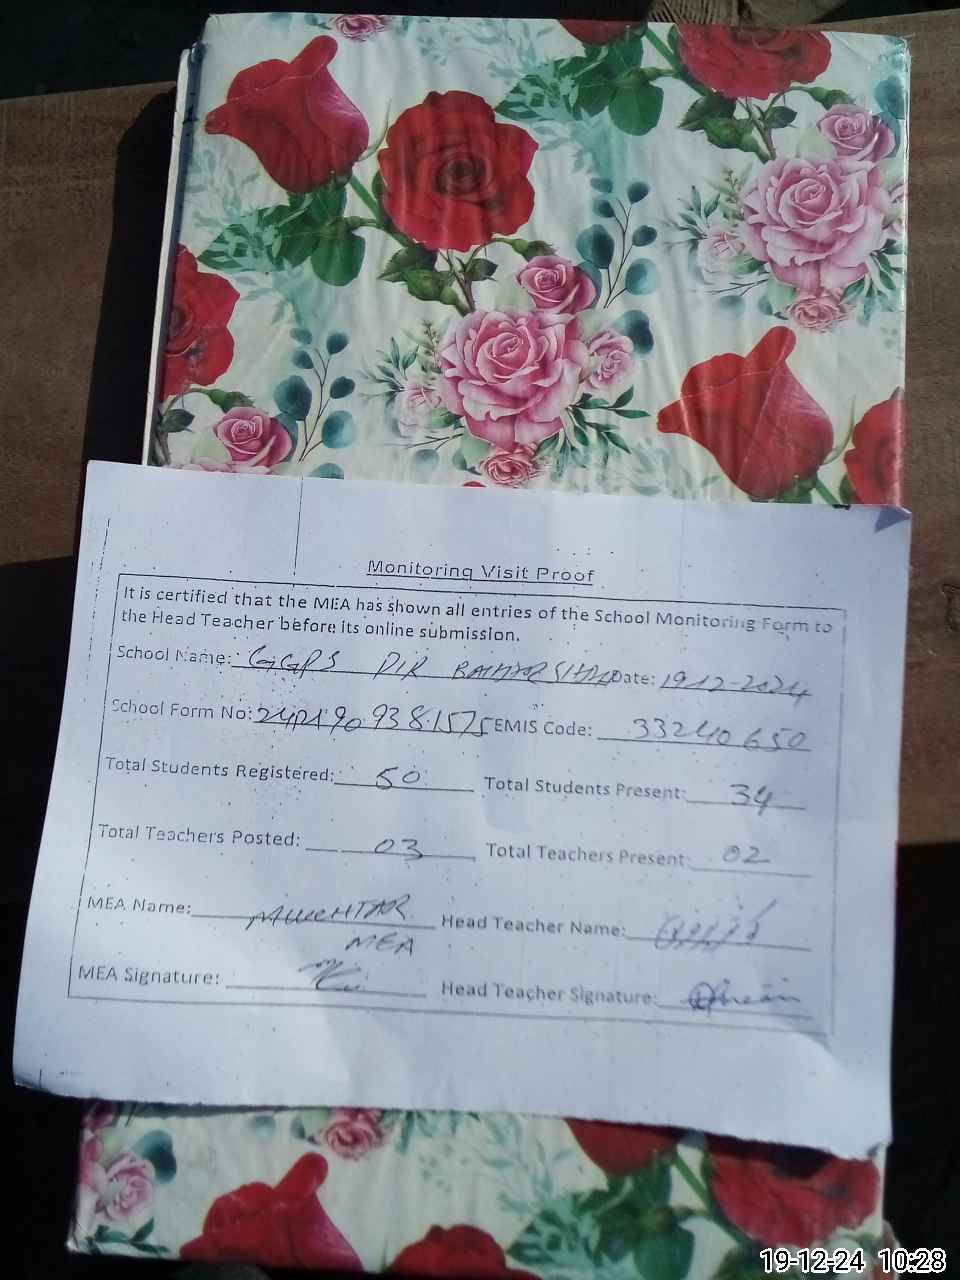 Monitoring Visit Proof
It is certified that the MEA has shown all entries of the School Monitoring Form to
the Head Teacher before its online submission.
School Name: GGPS PIR Date: 19-12-2024
School Form No: EMIS Code: 33240650
Total Students Registered: 50 Total Students Present: 34
Total Teachers Posted: 03 Total Teachers Present: 02
MEA Name: MUKHTAR Head Teacher Name:
MEA
MEA Signature: Head Teacher Signature:
19-12-24 10:28